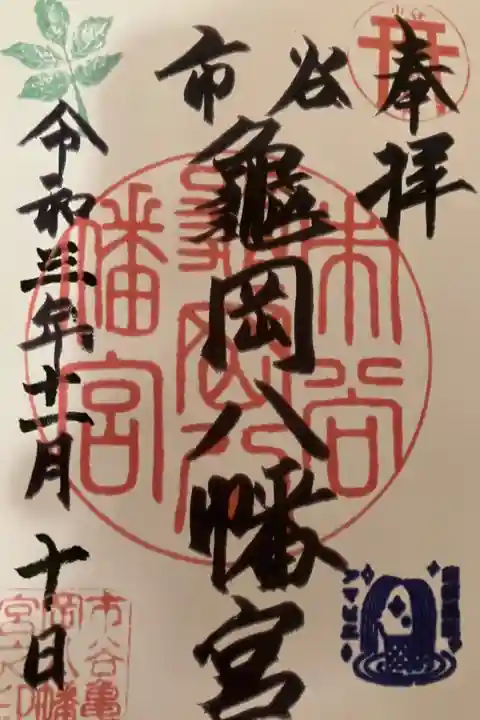 奉拝
市谷
龜岡八幡宮
令和三年十一月十日
市谷
龜岡八
幡宮
市谷亀
岡八幡
宮之印